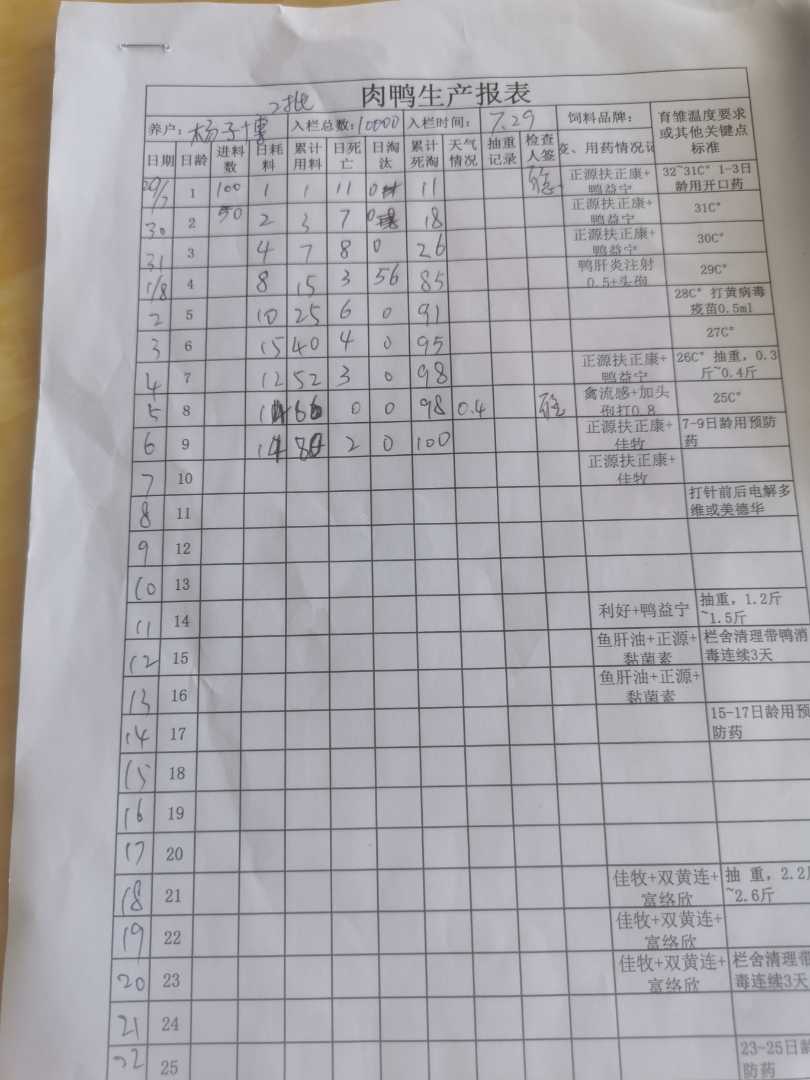 2批 肉鸭生产报表
养户: 杨子博 入栏总数: 10000 入栏时间: 7.29 饲料品牌: 育雏温度要求或其他关键点标准
日期 日龄 进料数 日耗料 累计用料 日死亡 日淘汰 累计死淘 天气情况 抽重记录 检查人签 变、用药情况记
29/7 1 100 1 1 11 0 11 正源扶正康+鸭益宁 32~31C° 1-3日龄用开口药
30 2 50 2 3 7 0 18 正源扶正康+鸭益宁 31C°
31 3 4 7 8 0 26 正源扶正康+鸭益宁 30C°
1/8 4 8 15 3 56 85 鸭肝炎注射0.5+头孢 29C°
2 5 10 25 6 0 91 28C° 打黄病毒疫苗0.5ml
3 6 15 40 4 0 95 27C°
4 7 12 52 3 0 98 正源扶正康+鸭益宁 26C° 抽重, 0.3斤~0.4斤
5 8 14 66 0 0 98 0.4 禽流感+加头孢打0.8 25C°
6 9 14 80 2 0 100 正源扶正康+佳牧 7-9日龄用预防药
7 10 正源扶正康+佳牧
8 11 打针前后电解多维或美德华
9 12
10 13
11 14 利好+鸭益宁 抽重, 1.2斤~1.5斤
12 15 鱼肝油+正源+黏菌素 栏舍清理带鸭消毒连续3天
13 16 鱼肝油+正源+黏菌素
14 17 15-17日龄用预防药
15 18
16 19
17 20
18 21 佳牧+双黄连+富络欣 抽 重, 2.2斤~2.6斤
19 22 佳牧+双黄连+富络欣
20 23 佳牧+双黄连+富络欣 栏舍清理带毒连续3天
21 24
22 25 23-25日龄防药